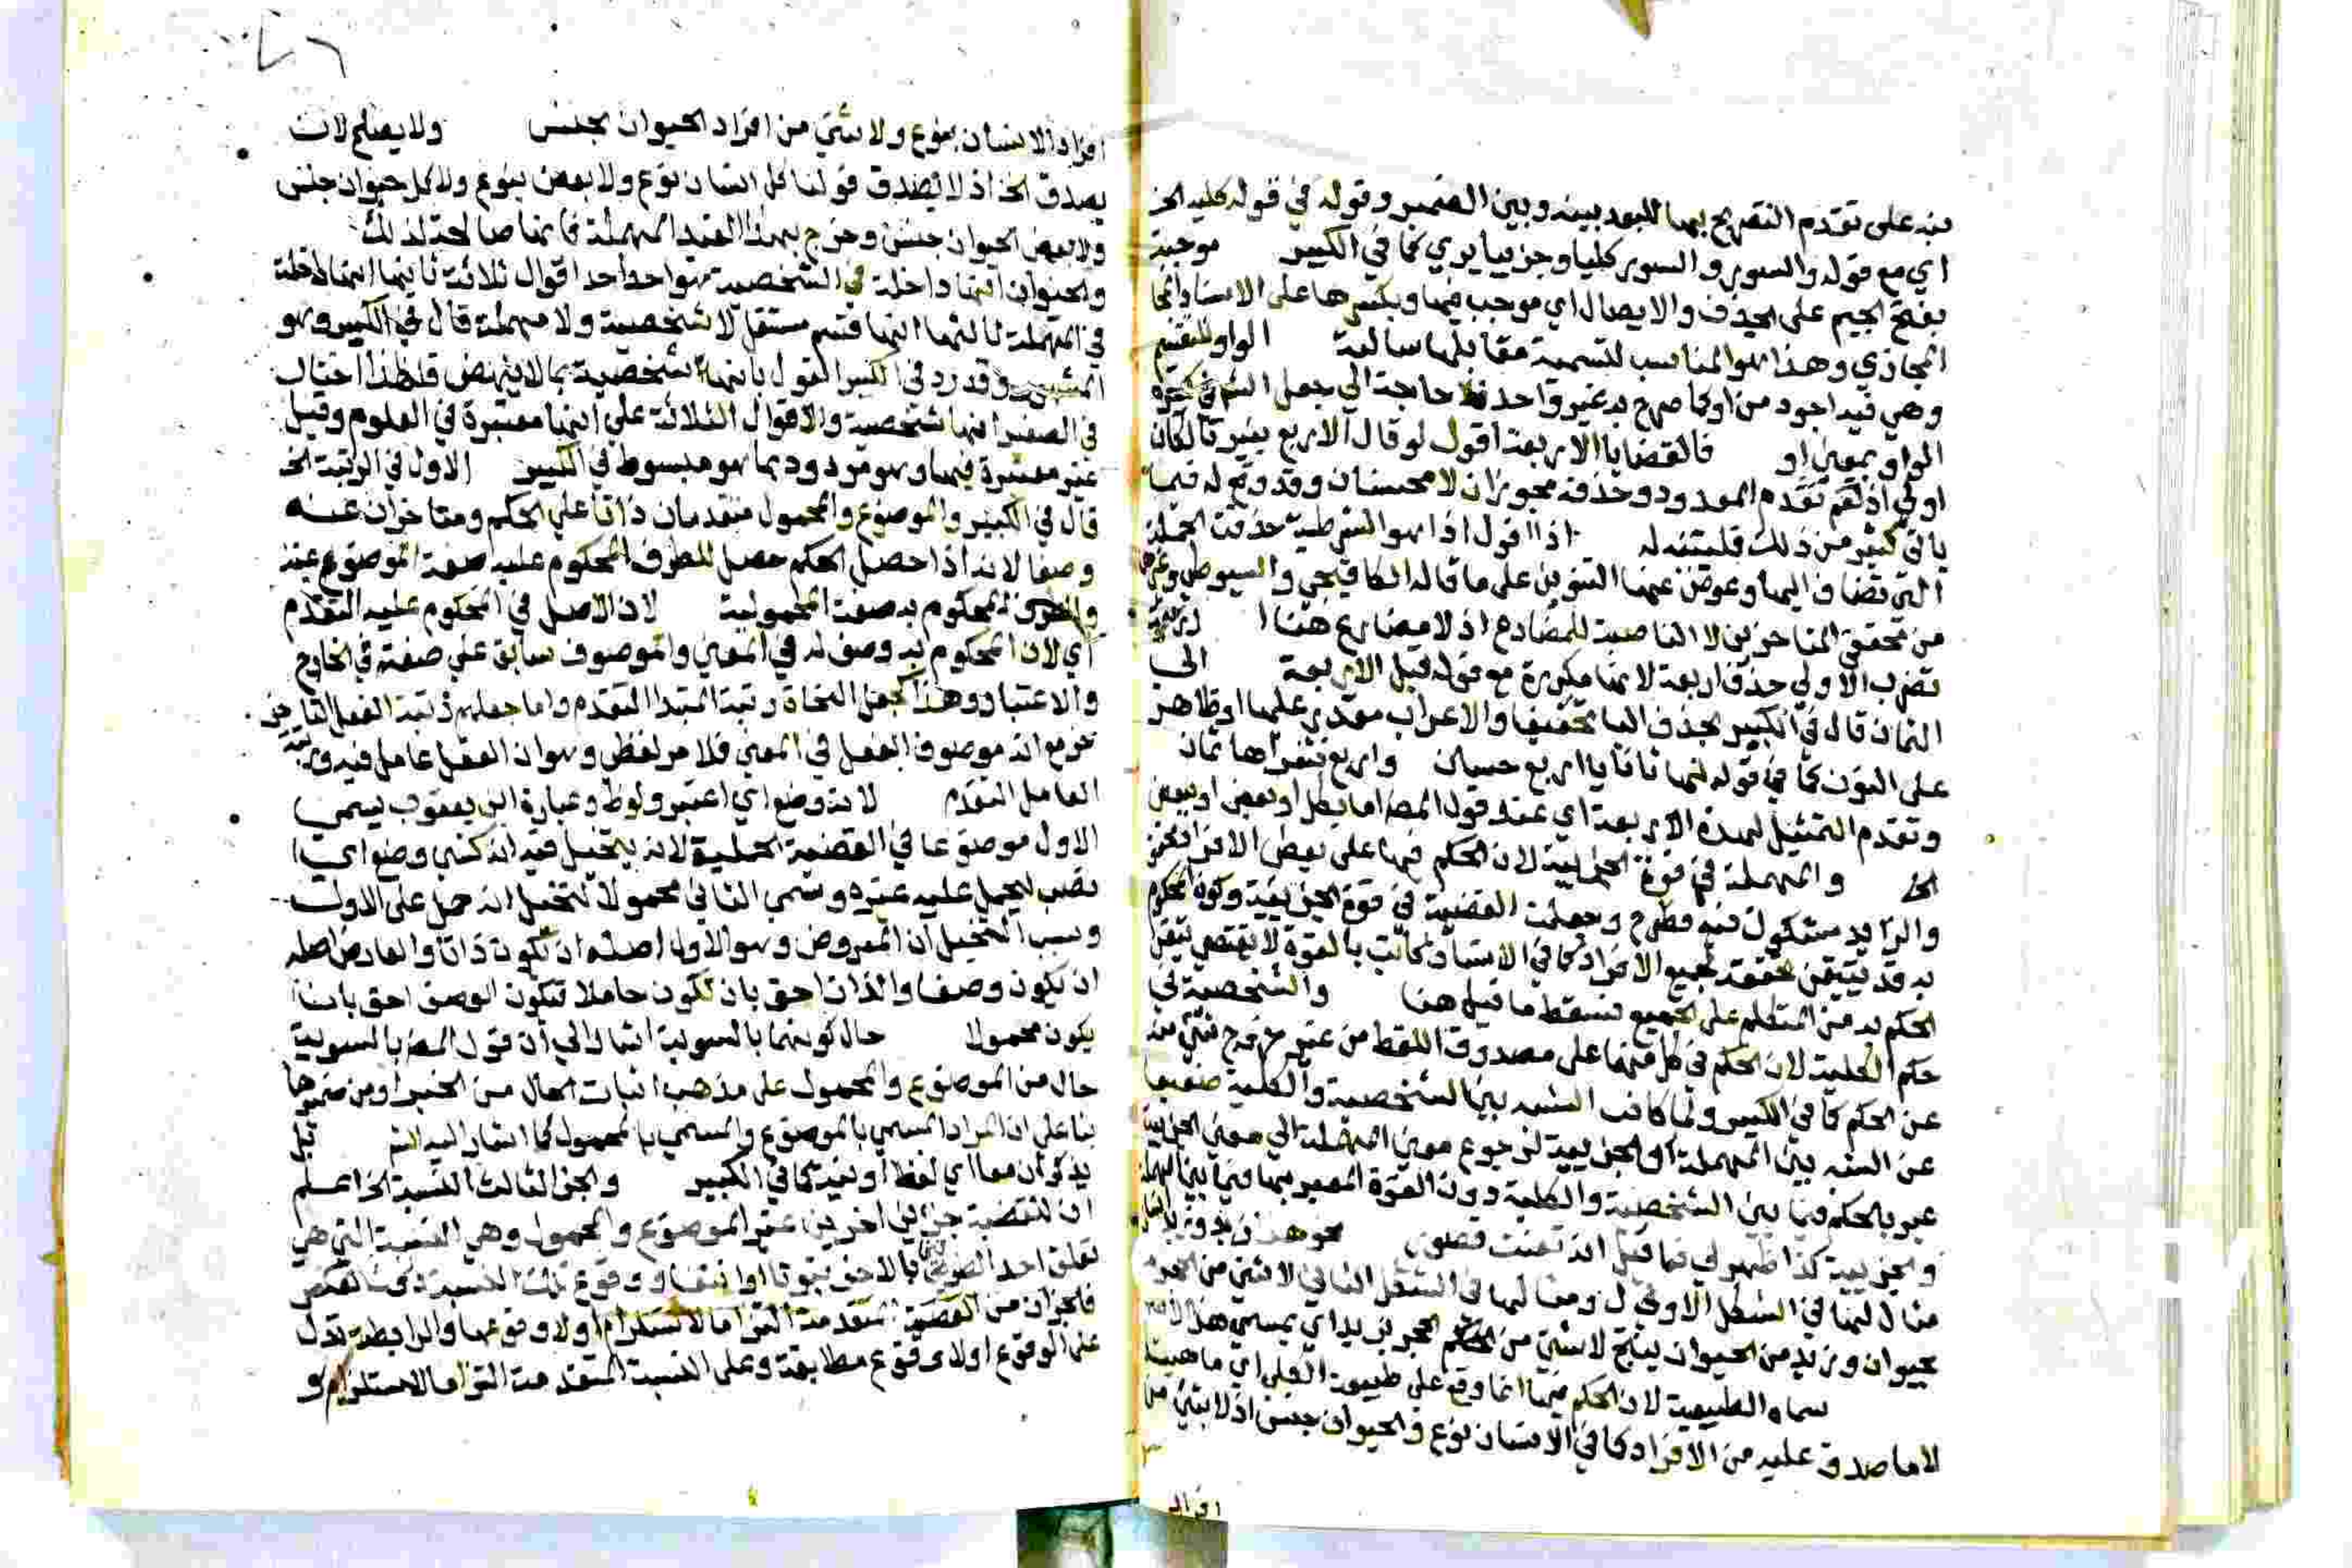 منه على تقدم التصريح بها للبعد بينه وبين الضمير وقوله في قوله كليه الخ
اي مع قوله والسور والسور كليا وجزييا يري كما في الكبير موجبة
بفتح الجيم على الحذف والايصال اي موجب فيها وبكسرها على الاسناد
المجازي وهذا هو المناسب لتسمية مقابلها سالبة الواو للتقسيم
وهي فيه اجود من او كما صرح به غير واحد فلا حاجة الي جعل
الواو بمعنى او فالقضايا الاربعة اقول لو قال الاربع بغير تا لكان
اولي اذ تقدم المعدود وحذفه مجوزان لا محسنان وقد وقع له فيما
ياتي كثير من ذلك فليتنبه له اذا اقول اذا هو الشرطية حذفت الجملة
التي تضاف اليها وعوض عنها التنوين على ما قاله الكافيجي والسيوطي
من محققي المتاخرين لا الناصبة للمضارع اذ لا مضارع هنا
تضرب الاولي حذف اربعة لانها مكررة مع قوله قبل الاربعة الى
الثمان قال في الكبير بحذف اليا تخفيفا والاعراب مقدر عليها او ظاهر
على النون كما في قوله لها ثنايا اربع حسان واربع فثغرها ثمان
وتقدم التمثيل لهذه الاربعة اي عند قول المص اما بكل او ببعض
الخ والمهملة في قوة الجزئية لان الحكم فيها على بعض الافراد محقق
والزايد مشكوك فيه فطرح وجعلت القضية في قوة الجزيية وكون المحكوم
به قد يتيقن تحققه لجميع الافراد كما في الانسان كاتب بالقوة لا يقتضي تيقن
الحكم به من المتكلم على الجميع فسقط ما قيل هنا والشخصية في
حكم الكلية لان الحكم في كل منهما على مصدوق اللفظ من غير خروج شي منه
عن الحكم كما في الكبير ولما كان الشبه بين الشخصية والكلية ضعيفا
عن الشبه بين المهملة والجزييه لرجوع معنى المهملة الي معنى الجزيية
عبر بالحكم فيما بين الشخصية والكلية دون القوة المعبر بها فيما بين المهملة
والجزيية كذا ظهر لي فما قيل انه تفنن قصور نحو هذا زيد
مثال لها في الشكل الاول ومثالها في الشكل الثاني لا شي من الحجر
بحيوان وزيد من الحيوان ينتج لا شي من الحجر بزيد اي يسمى هذا
سماه الطبيعية لان الحكم فيها انما وقع على طبيعة الكلي اي ماهيته
لا ما صدق عليه من الافراد كما في الانسان نوع والحيوان جنس اذ لا شي من
افراد
افراد الانسان بنوع ولا شي من افراد الحيوان بجنس ولا يصلح لان
يصدق الخ اذ لا يصدق قولنا كل انسان نوع ولا بعض بنوع ولا كل حيوان جنس
ولا بعض الحيوان جنس وخرج بهذا القيد المهملة فانها صالحة لذلك
والحيوان انها داخلة في الشخصية هو احد اقوال ثلاثة ثانيها انها داخلة
في المهملة ثالثها انها قسم مستقل لا شخصية ولا مهملة قال في الكبير وهو
وقد رد في الكبير القول بانها شخصية بما لا ينهض فلهذا اختار
في الصغير انها شخصية والاقوال الثلاثة على انها معتبرة في العلوم وقيل
غير معتبرة فيها وهو مردود بما هو مبسوط في الكبير الاول في الرتبة الخ
قال في الكبير والموضوع والمحمول متقدمان ذاتا على الحكم ومتاخران عنه
وصفا لانه اذا حصل الحكم حصل للطرف المحكوم عليه صفة الموضوعية
المحكوم به صفة المحمولية لان الاصل في المحكوم عليه التقدم
اي لان المحكوم به وصف له في المعنى والموصوف سابق على صفته في الخارج
والاعتبار وهذا كجعل النحاة رتبة المبتدا التقدم واما جعلهم رتبة الفعل التقدم
مع انه موصوف الفعل في المعنى فلامر لفظي وهو ان الفعل عامل فيه
العامل التقدم لانه وضع اي اعتبر ولوحظ وعبارة ابن يعقوب يسمى
الاول موضوعا في القضية الحملية لانه يتخيل فيه انه كشي وضع اي
نصب ليحمل عليه غيره وسمي الثاني محمولا لتخيل انه حمل على الاول
وسبب التخيل ان المعروض وهو الاول اصله ان يكون ذاتا والعارض اصله
ان يكون وصفا والذات احق بان تكون حاملا فتكون الوصف احق بان
يكون محمولا حال كونهما بالسوية اشار الي ان قول المص بالسوية
حال من الموضوع والمحمول على مذهب اثبات الحال من الخبر او من ضميرها
بنا على ان المراد المسمى بالموضوع والمسمى بالمحمول كما اشار اليه الش قبل
يذكران معا اي لفظا او نية كما في الكبير والجز الثالث النسبة الخ اعلم
ان للقضية جزئين اخرين غير الموضوع والمحمول وهي النسبة التي هي
تعلق احد الطرفين بالاخر ثبوتا او انتفاء ووقوع تلك النسبة
فالجزان من القضية المتقدمة التزاما لاستلزام او لا وقوعها والرابطة تدل
على الوقوع او لا وقوع مطابقة وعلى النسبة المتقدمة التزاما لاستلزام